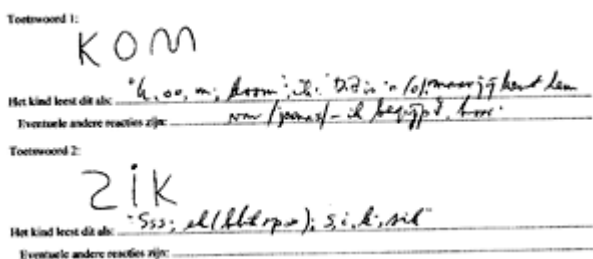 Toetswoord 1:
KOM
Het kind leest dit als: "k, oo, m; koom"; ik: "Dit is 'n /o/; maar jij kent hem
Eventuele andere reacties zijn: van /jonas/ - ik begrijp 't, hoor.
Toetswoord 2:
ZIK
Het kind leest dit als: "Sss; ; s, i, k; sik"
Eventuele andere reacties zijn: